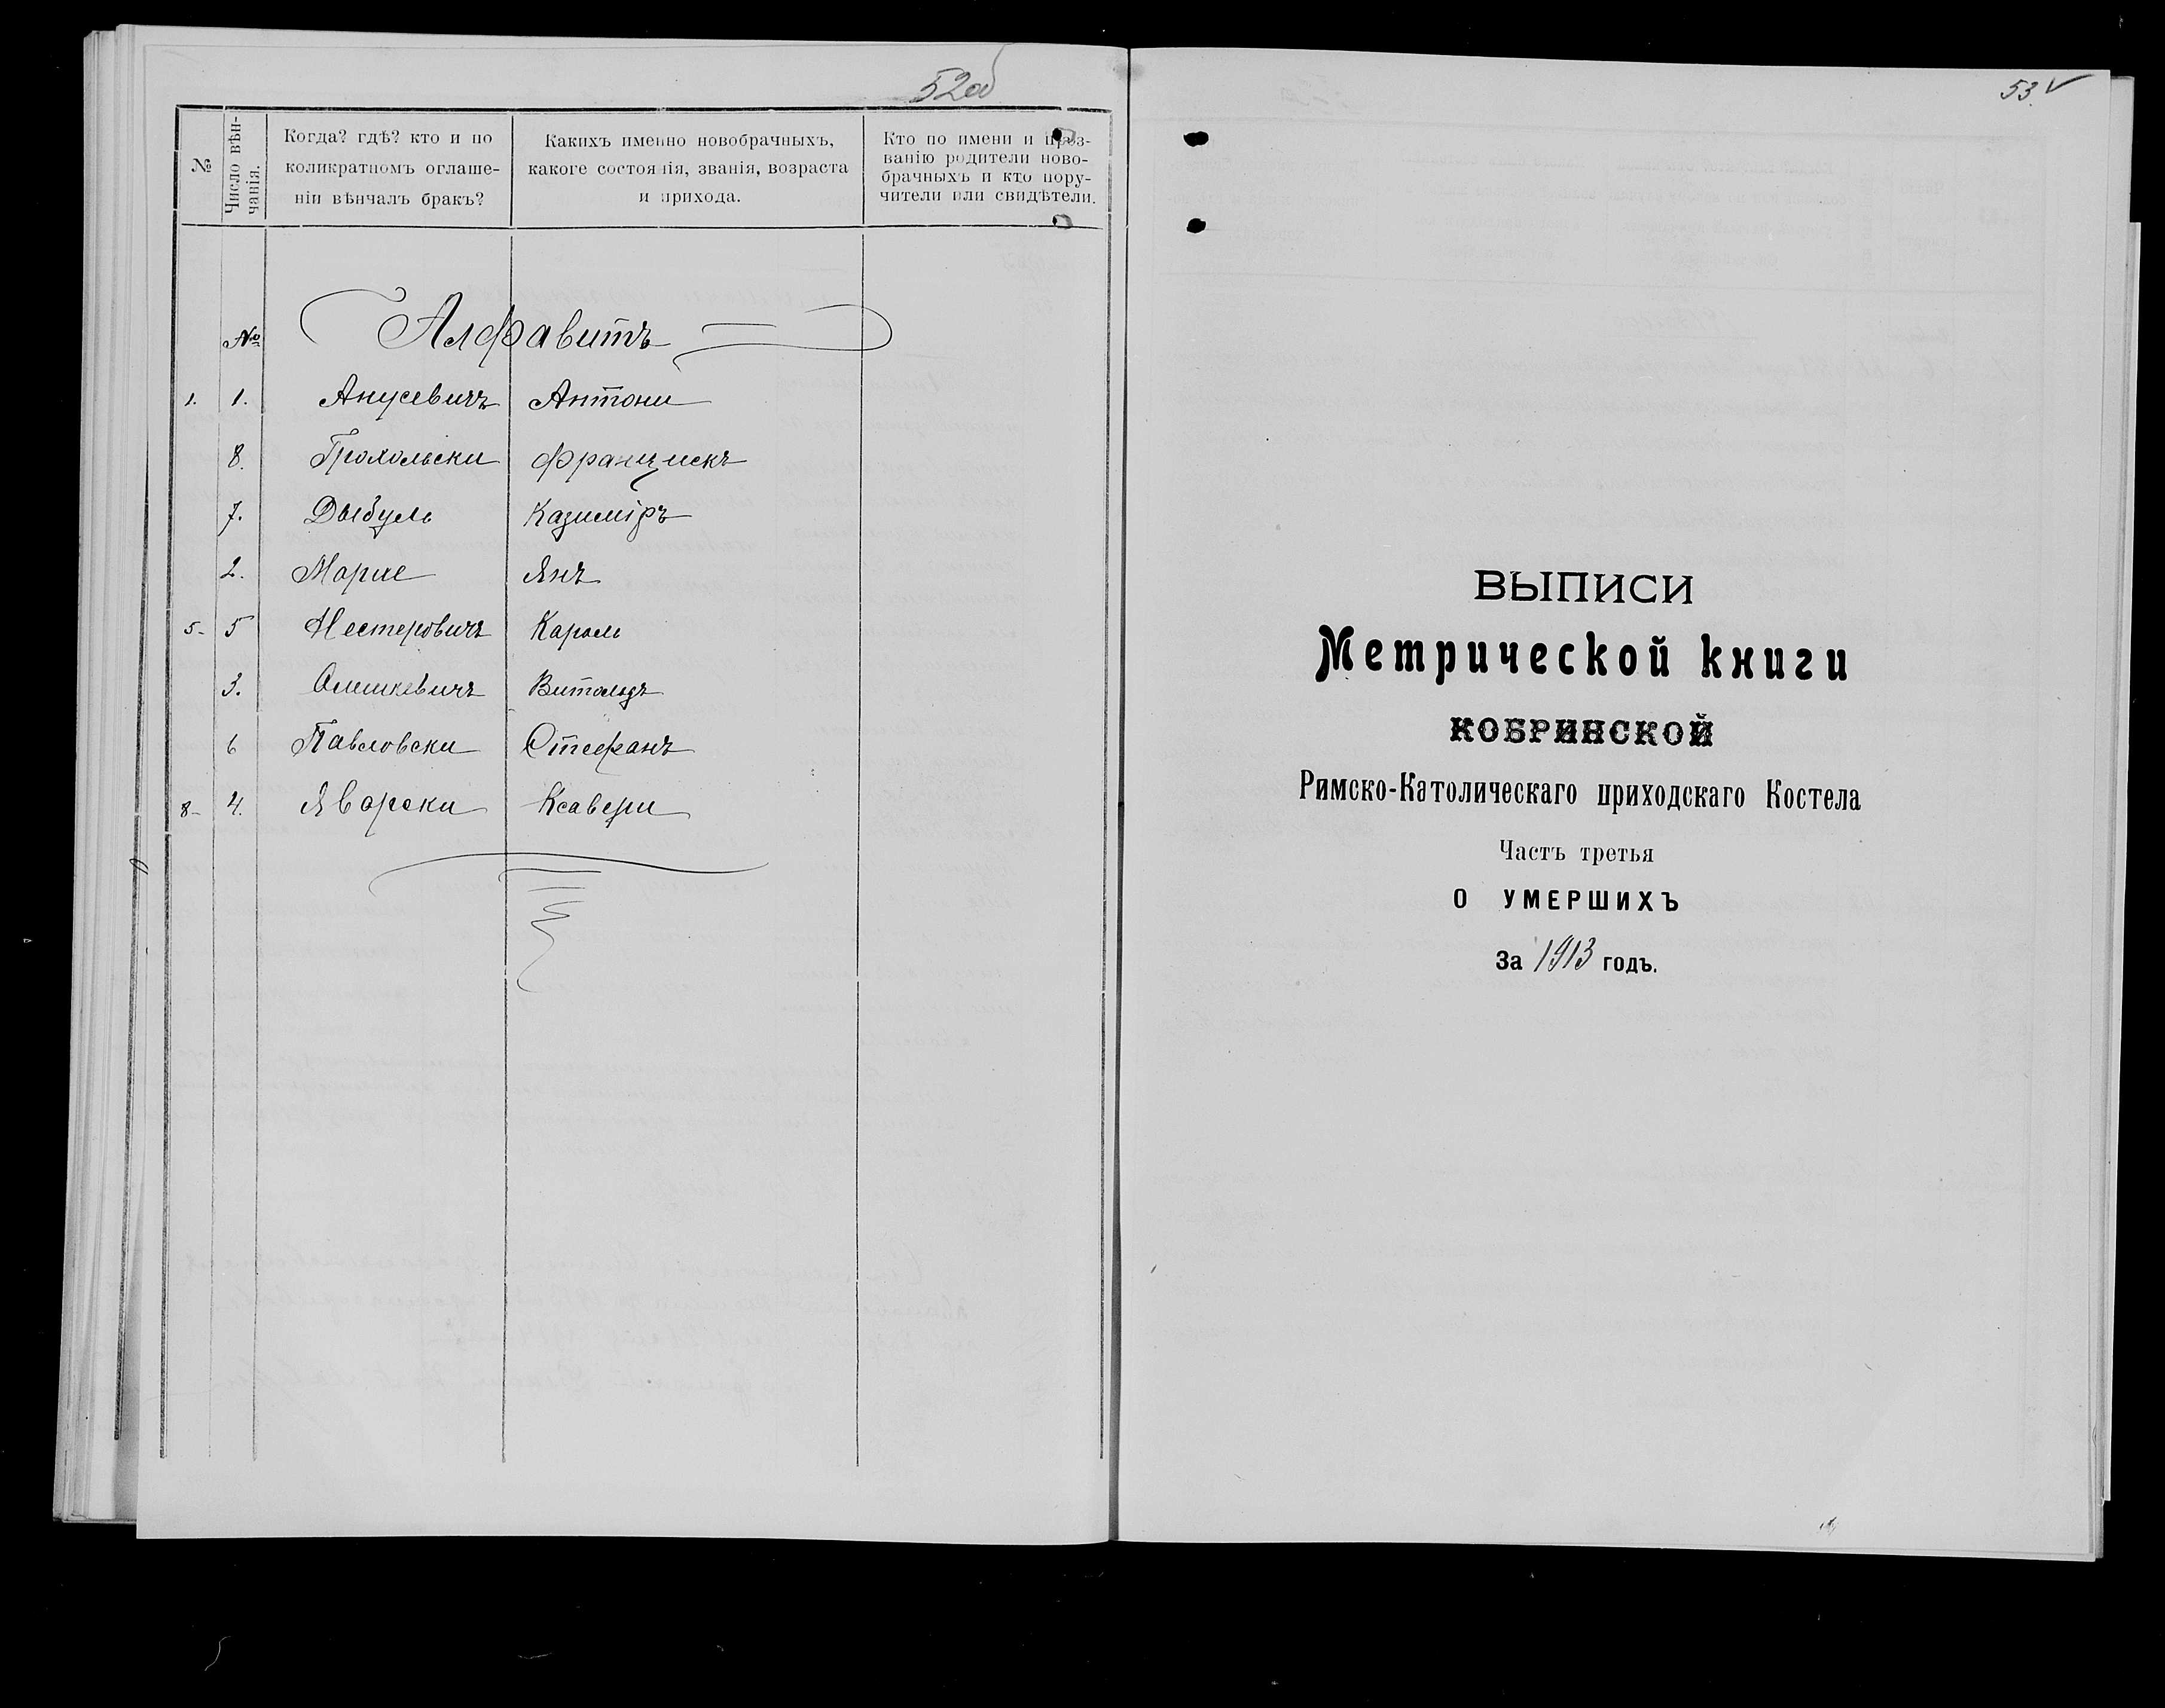 52об
№
Число вѣн-
чанія.
Когда? гдѣ? кто и по
коликратномъ оглаше-
ніи вѣнчалъ бракъ?
Какихъ именно новобрачныхъ,
какоге состоянія, званія, возраста
и прихода.
Кто по имени и проз-
ванію родители ново-
брачныхъ и кто пору-
чители или свидѣтели.
№ Алфавитъ
1. 1. Анусевичъ Антони
8. Грохольски Францискъ
7. Дыбуль Казиміръ
2. Янъ
5- 5 Нестеровичъ Кароль
3. Олешкевичъ Витольдъ
6 Павловски Стефанъ
8- 4. Яворски Ксавери
53
ВЫПИСИ
Метрической книги
КОБРИНСКОЙ
Римско-Католическаго приходскаго Костела
Часть третья
О УМЕРШИХЪ
За 1913 годъ.